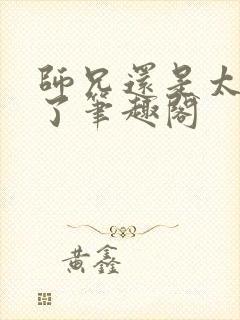 師兄還是太
了筆趣閣
黃鑫